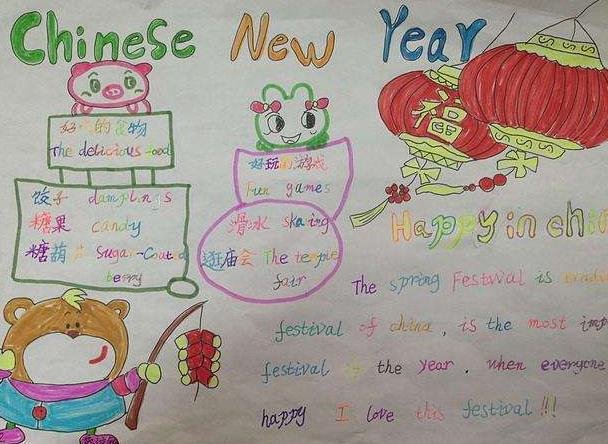 Chinese New Year
好吃的食物
The delicious food
饺子 dumplings
糖果 candy
糖葫芦 Sugar-Coated
berry
好玩的游戏
Fun games
滑冰 skating
逛庙会 The temple
fair
福
Happy in chin
The Spring Festival is
festival of china, is the most imp
festival the year. when everyone
happy I love this festival!!!